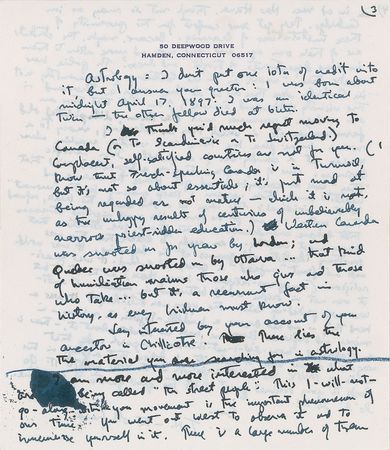 (3
50 DEEPWOOD DRIVE
HAMDEN, CONNECTICUT 06517
Astrology: I don't put one iota of credit into
it, but I answer your question: I was born about
midnight April 17, 1897. I was an identical
Twin — the other fellow died at birth.
I think you'd much regret moving to
Canada (or To Scandinavia or To Switzerland)
Complacent, self-satisfied countries are not for you. (I
know that French-speaking Canada is in Turmoil,
but it's not so about essentials; it's just mad at
being regarded as not mature — which it is not,
as the unhappy result of centuries of unbelievably
narrow priest-ridden education.) Western Canada
was snooted as for years by London; and
Quebec was snooted by Ottawa... that kind
of humiliation maims those who give and those
who take... but it's a recurrent fact in
history, as every Irishman must know.
Very interested by your account of your
ancestor in Chillicothe. There lies the
the material you are searching for in astrology.
I am more and more interested in what
are being called "the street people". This I-will-not-
go-along-with-you movement is the important phenomenon of
our time. You went out west to observe it and to
immerse yourself in it. There is a large number of them